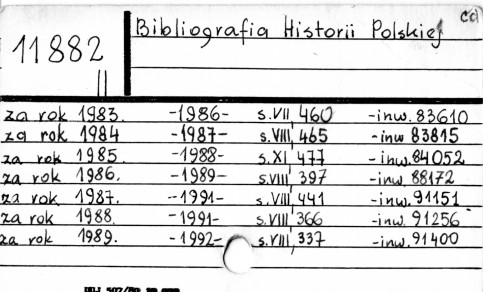 cd
Bibliografia Historii Polskiej
11882
II
za rok 1983. -1986- s.VII, 460 -inw. 83610
za rok 1984 -1987- s.VIII, 465 -inw 83815
za rok 1985. -1988- s.XI, 477 -inw. 84052
za rok 1986. -1989- s.VIII, 397 -inw. 88172
za rok 1987. -1991- s.VIII, 441 -inw. 91151
za rok 1988. -1991- s.VIII, 366 -inw. 91256
za rok 1989. -1992- s.VIII, 337 -inw. 91400